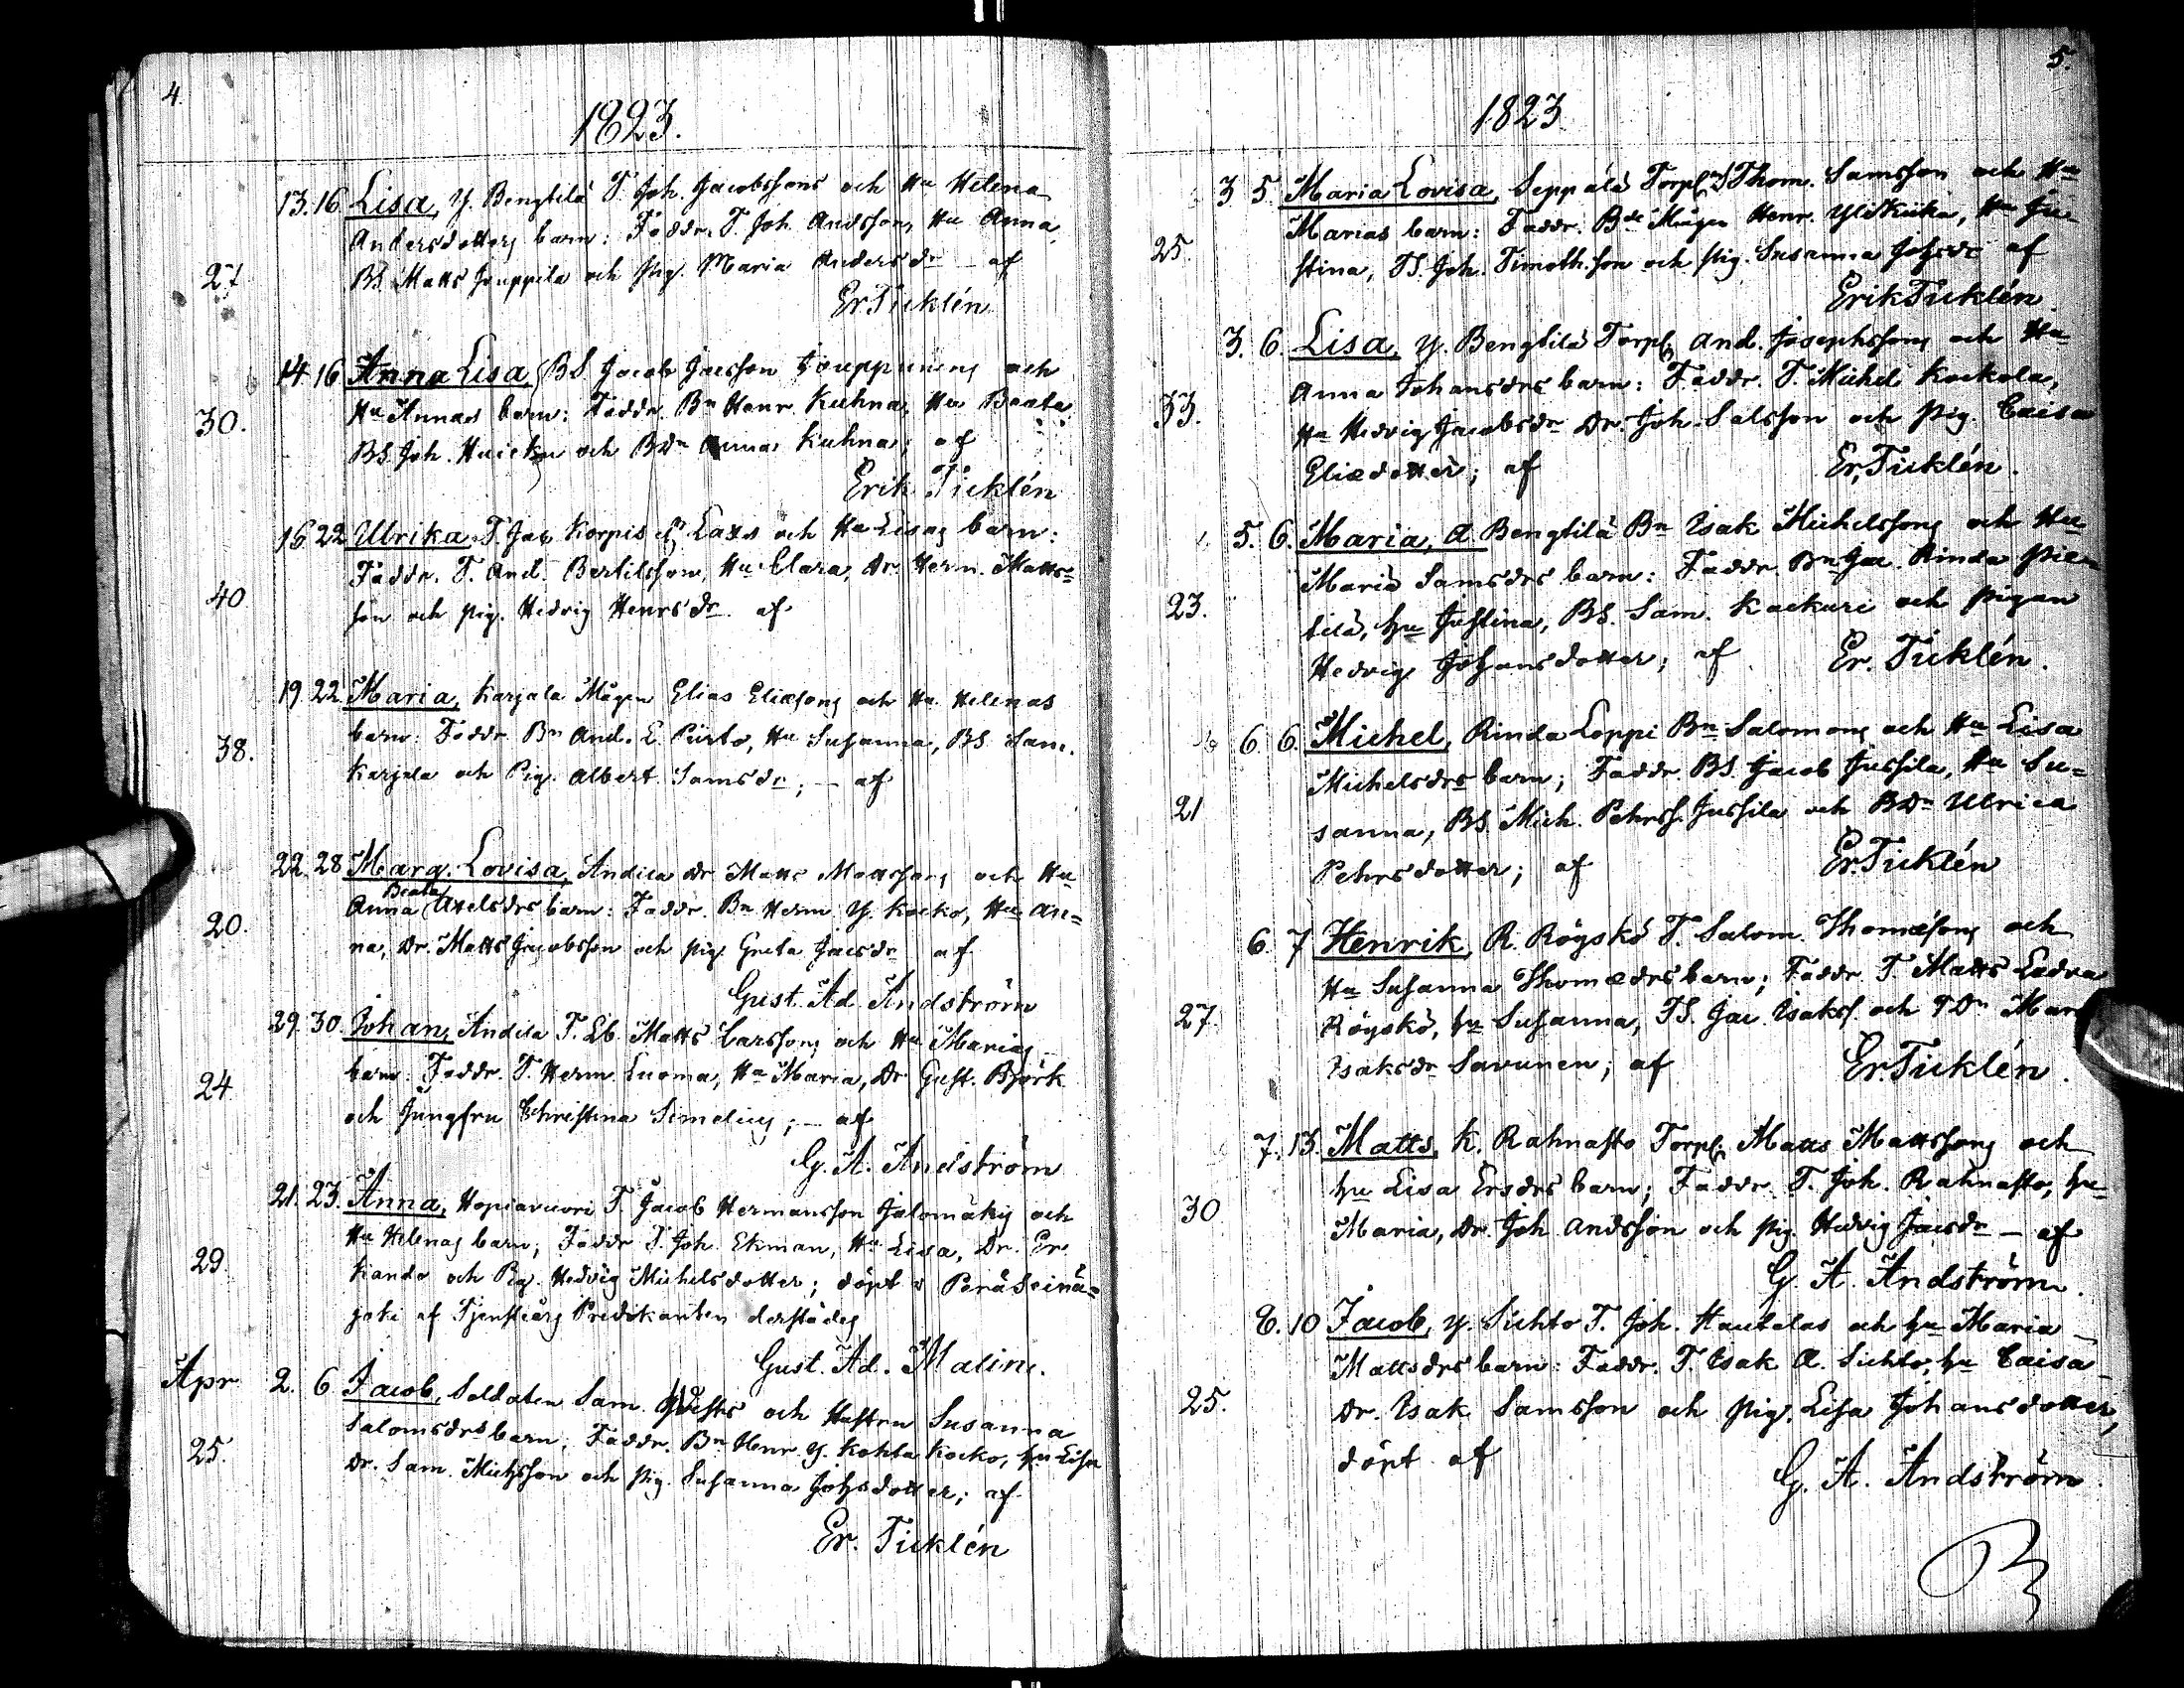 4.
1823.
13. 16. Lisa, Y. Bengtilä T. Joh. Jacobssons och Hu Helena
Andersdotters barn: Faddr. T. Joh. Andsson, Hu Anna,
27 BS. Matts Jouppila och pig. Maria Andersdr af
Er Ticklén
14. 16 Anna Lisa, BS Jacob Jacsson och
Hu Annas barn: Faddr. Bn Henr. Kuhna, Hu Beata,
30. BS. Joh. och BDr Anna Kuhna; af
Erik Ticklén
16. 22 Ulrika, T. Jac Korpis och Hu Lisas barn:
Faddr. T. And. Bertilsson, Hu Clara, Dr. Herm. Matts=
40 son och pig. Hedvig Henrsdr af
19. 22. Maria, Karjala Mågen Elias Eliæsons och Hu Helenas
barn: Faddr. Bn And. L. Piirto, Hu Susanna, BS. Sam.
38. Karjala och Pig. Albert. Samsdr; — af
22. 28 Marg. Lovisa, Andila Dr Matts Mattssons och Hu
Beata
Anna Axelsdrs barn: Faddr. Bn Herm. Y. Kocko, Hu An=
20. na, Dr. Matts Jacobsson och pig. Greta Jacsdr af
Gust. Ad. Andström
29. 30. Johan, Andila T. Eb. Matts Carssons och Hu Marias
barn: Faddr. T. Herm. Luoma, Hu Maria, Dr Gust. Björk
24 och Jungfru Christina Simelius; — af
G. A. Andström
21. 23. Anna, Hopiavuori T. Jacob Hermansson Jalomäkis och
Hu Helenas barn; Faddr T. Joh. Ekman, Hu Lisa, Dr. Er.
29. Kando och Pig. Hedvig Michelsdotter; döpt i Peräseinä=
joki af Tjenstiörs Predikanten derstädes
Gust. Ad. Malin.
Apr 2. 6. Jacob, Soldaten Sam. och Hustru Susanna
Salomsdrs barn; Faddr. Bn Henr. Y. Kohta Kocko, hu Lisa
25. Dr. Sam. Michsson och pig. Susanna Johsdotter; af
Er. Ticklén
5.
1823
3 5. Maria Lovisa, Seppälä Torpn Thom. Samsson och Hu
Marias barn: Faddr. Bde Mågen Henr. Ylikiika, Hu Ju=
25. stina, TS. Joh. Timoth.son och pig. Susanna Johsdr af
Erik Ticklén
3. 6. Lisa, Y. Bengtilä Torp. And. Josephssons och Hu
Anna Johansdrs barn: Faddr. T. Michel Kockola,
33. Hu Hedvig Jacobsdr Dr. Joh. Salsson och pig. Caisa
Eliædotter; af Er. Ticklén.
5. 6. Maria, A. Bengtilä Bn Isak Michelssons och Hu
Maria Samsdrs barn: Faddr. Bn Jac. Rinda
23. tilä, hu Justina, BS. Sam. Kackuri och pigan
Hedvig Johansdotter; af Er. Ticklén.
6. 6. Michel, Rinda Loppi Bn Salomons och Hu Lisa
Michelsdrs barn; Faddr. BS. Jacob Jussila, Hu Su=
21 sanna, BS. Mich. Pehrss. Jussila och BDr Ulrica
Pehrsdotter; af Er. Ticklén
6. 7 Henrik, R. Röyskö T. Salom. Thomæsons och
Hu Susanna Thomædrs barn; Faddr. T. Matts Ladva
27. Röyskö, hu Susanna, TS. Jac. Isakss. och TDr Mar
Isaksdr Savunen; af Er. Ticklén.
7. 13. Matts, K. Rahnasto Torp. Matts Mattssons och
hu Lisa Ersdrs barn; Faddr. T. Joh. Rahnasto, hu
30 Maria, Dr. Joh Andsson och pig. Hedvig Jacsdr — af
G. A. Andström.
8. 10 Jacob, Y. Sichto T. Joh. Hautalas och hu Maria
Mattsdrs barn: Faddr. T. Isak A. Sichto, hu Caisa
25. Dr. Isak Samsson och pig. Lisa Johansdotter,
döpt af
G. A. Andström